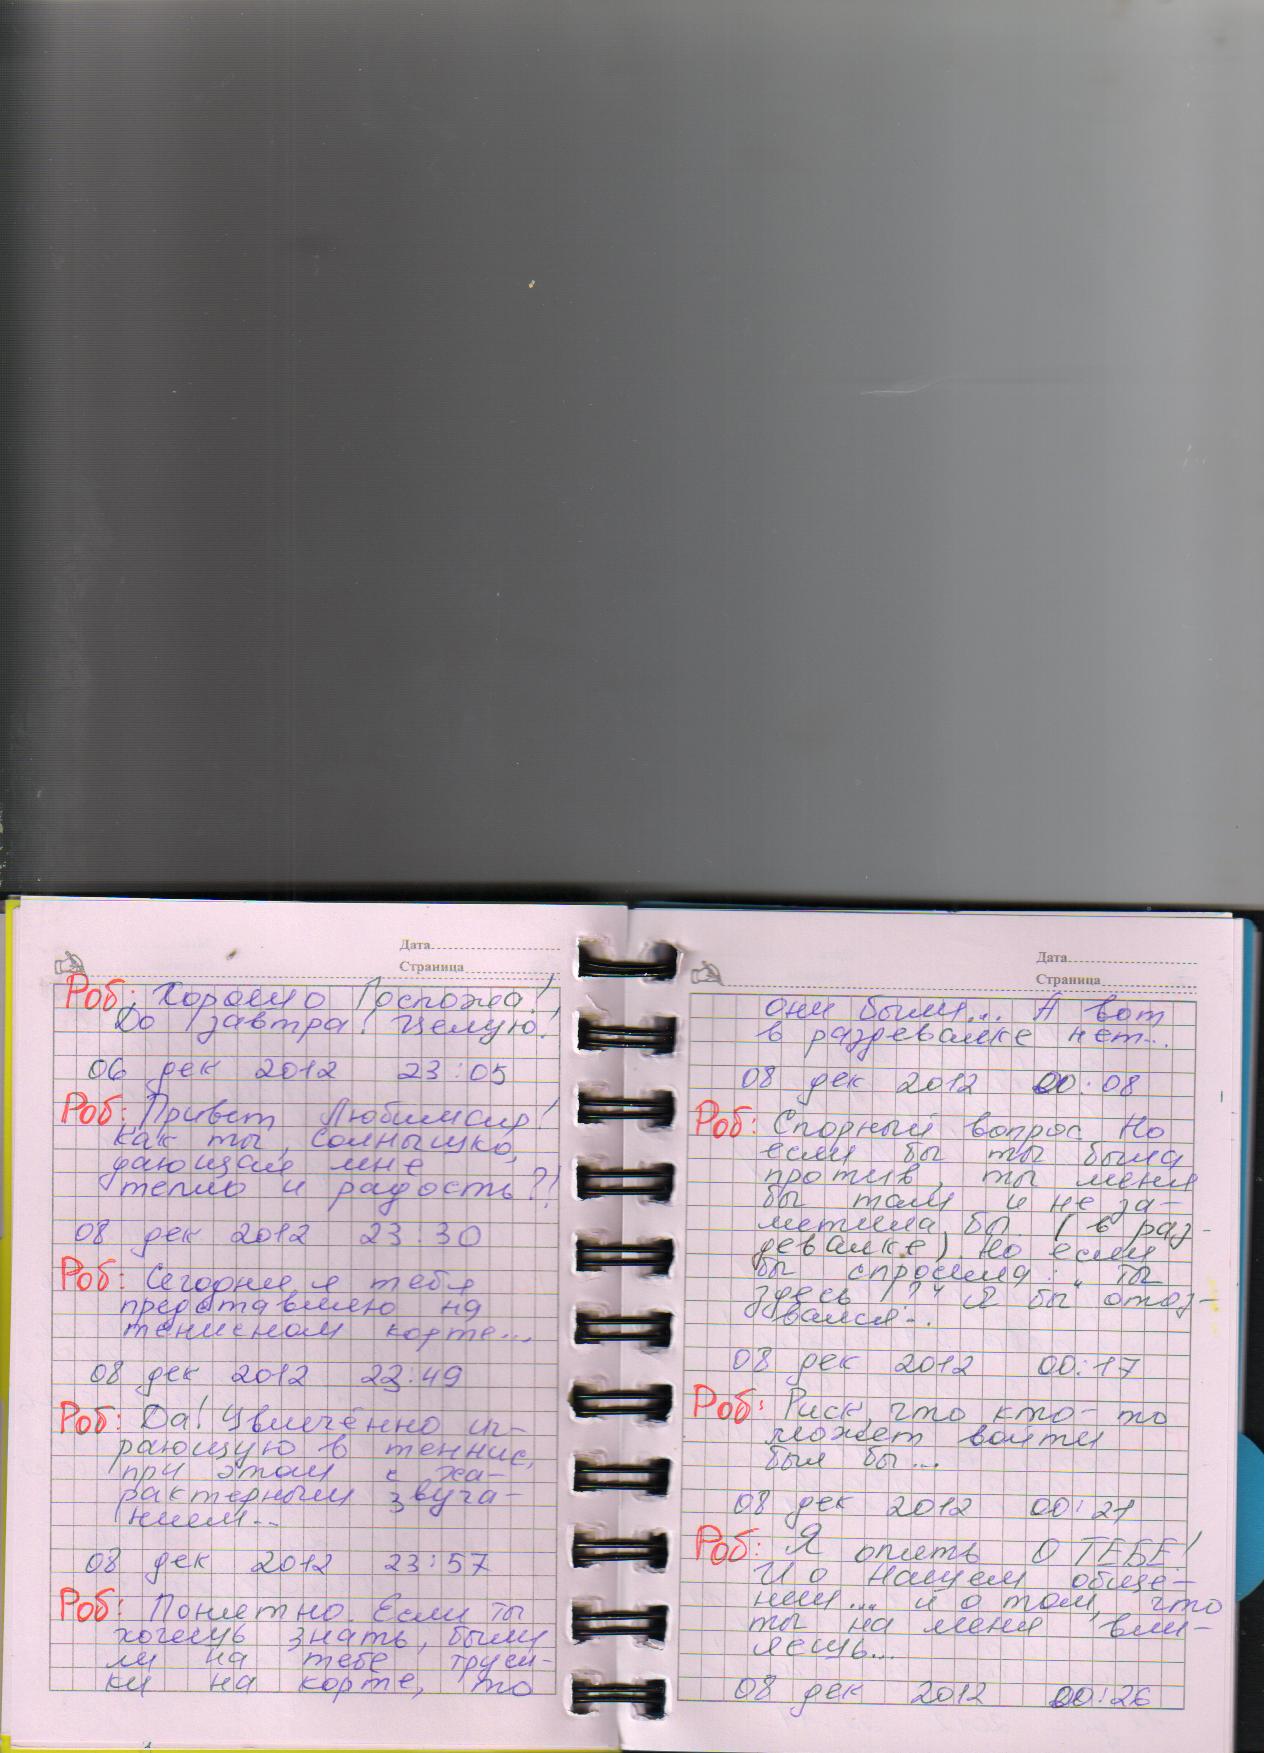 Дата
Страница
Роб: Хорошо Госпожа!
До завтра! Целую!
06 дек 2012 23:05
Роб: Привет Любимая!
Как ты, Солнышко,
дающая мне
тепло и радость?!
08 дек 2012 23:30
Роб: Сегодня я тебя
представляю на
тенисном корте...
08 дек 2012 23:49
Роб: Да! Увлечённо иг-
рающую в теннис,
при этом с ха-
рактерным звуча-
нием...
08 дек 2012 23:57
Роб: Понятно. Если ты
хочешь знать, были
ли на тебе труси-
ки на корте, то
Дата
Страница
они были... А вот
в раздевалке нет...
08 дек 2012 00:08
Роб: Спорный вопрос. Но
если бы ты была
против, ты меня
бы там и не за-
метила бы. (в раз-
девалке). Но если
бы спросила: "ты
здесь!?" Я бы отоз-
вался...
08 дек 2012 00:17
Роб: Риск, что кто-то
может войти
был бы...
08 дек 2012 00:21
Роб: Я опять О ТЕБЕ!
И о нашем обще-
нии... и о том, что
ты на меня вли-
яешь...
08 дек 2012 00:26